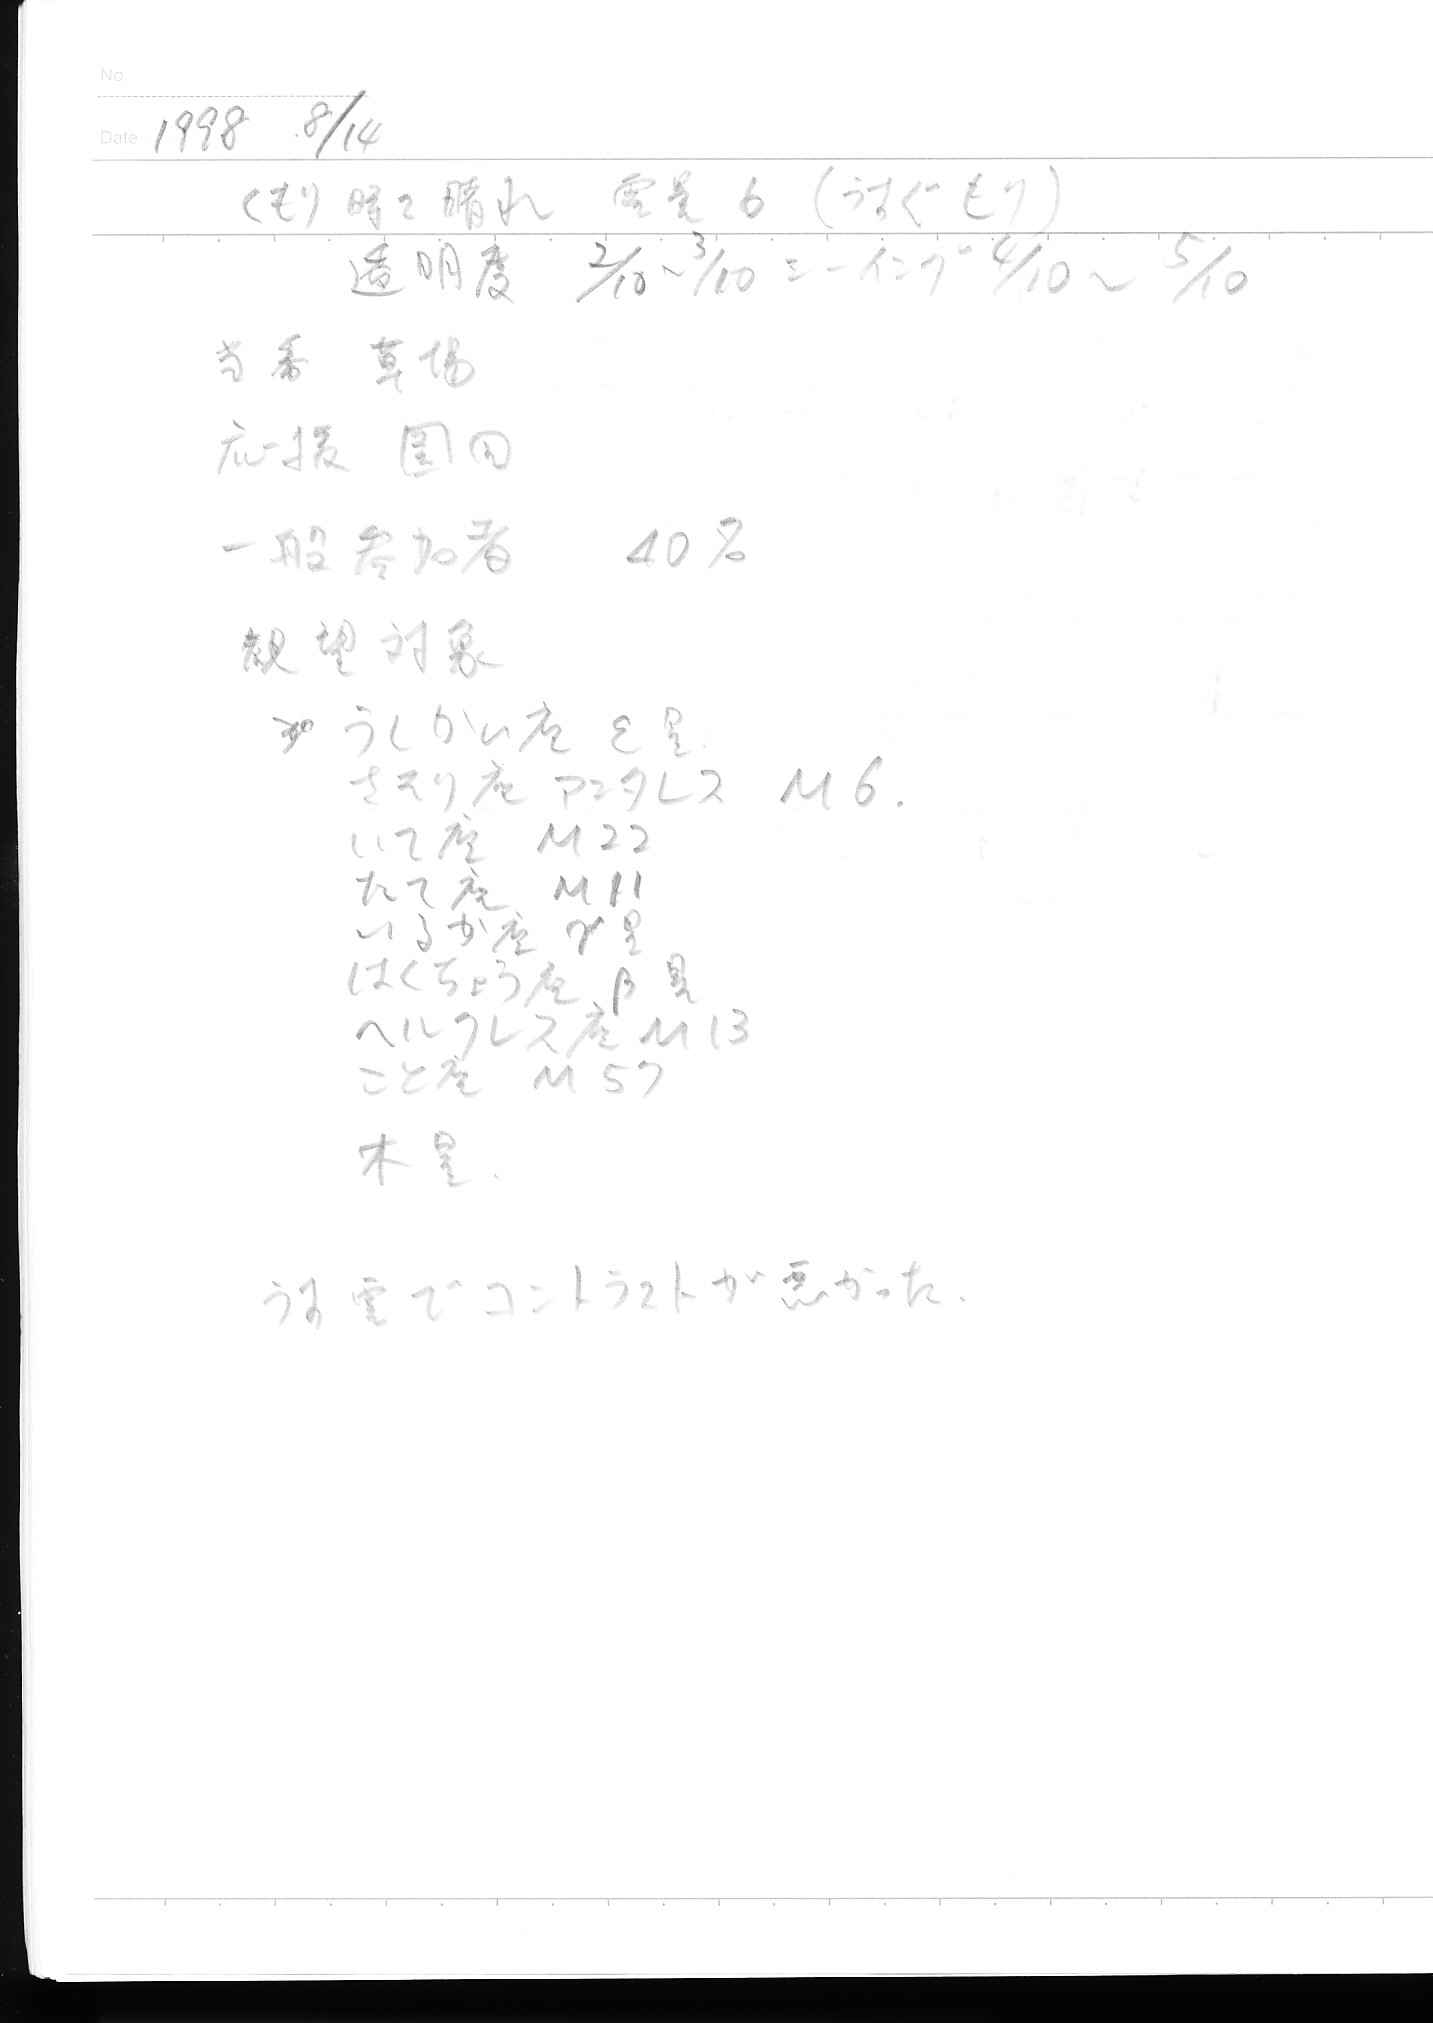 No.
Date 1998 8/14
くもり時々晴れ 雲量 6 (うすぐもり)
透明度 2/10~3/10 シーイング 4/10~5/10
当番 草場
応援 國田
一般参加者 40名
観望対象
うしかい座 ε星
さそり座 アンタレス M6.
いて座 M22
たて座 M11
いるか座 γ星
はくちょう座 β星
ヘルクレス座 M13
こと座 M57
木星.
うす雲でコントラストが悪かった.